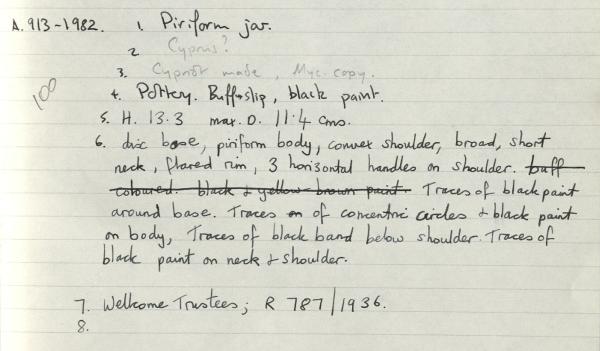 A.913-1982. 1. Piriform jar.
2 Cyprus?
3. Cypriot made, Myc. copy.
100
4. Pottery. Buff slip, black paint.
5. H. 13.3 max. D. 11.4 cms.
6. disc base, piriform body, convex shoulder, broad, short
neck, flared rim, 3 horizontal handles on shoulder. buff
coloured. black & yellow-brown paint. Traces of black paint
around base. Traces on of concentric circles & black paint
on body, Traces of black band below shoulder. Traces of
black paint on neck & shoulder.
7. Wellcome Trustees; R 787/1936.
8.